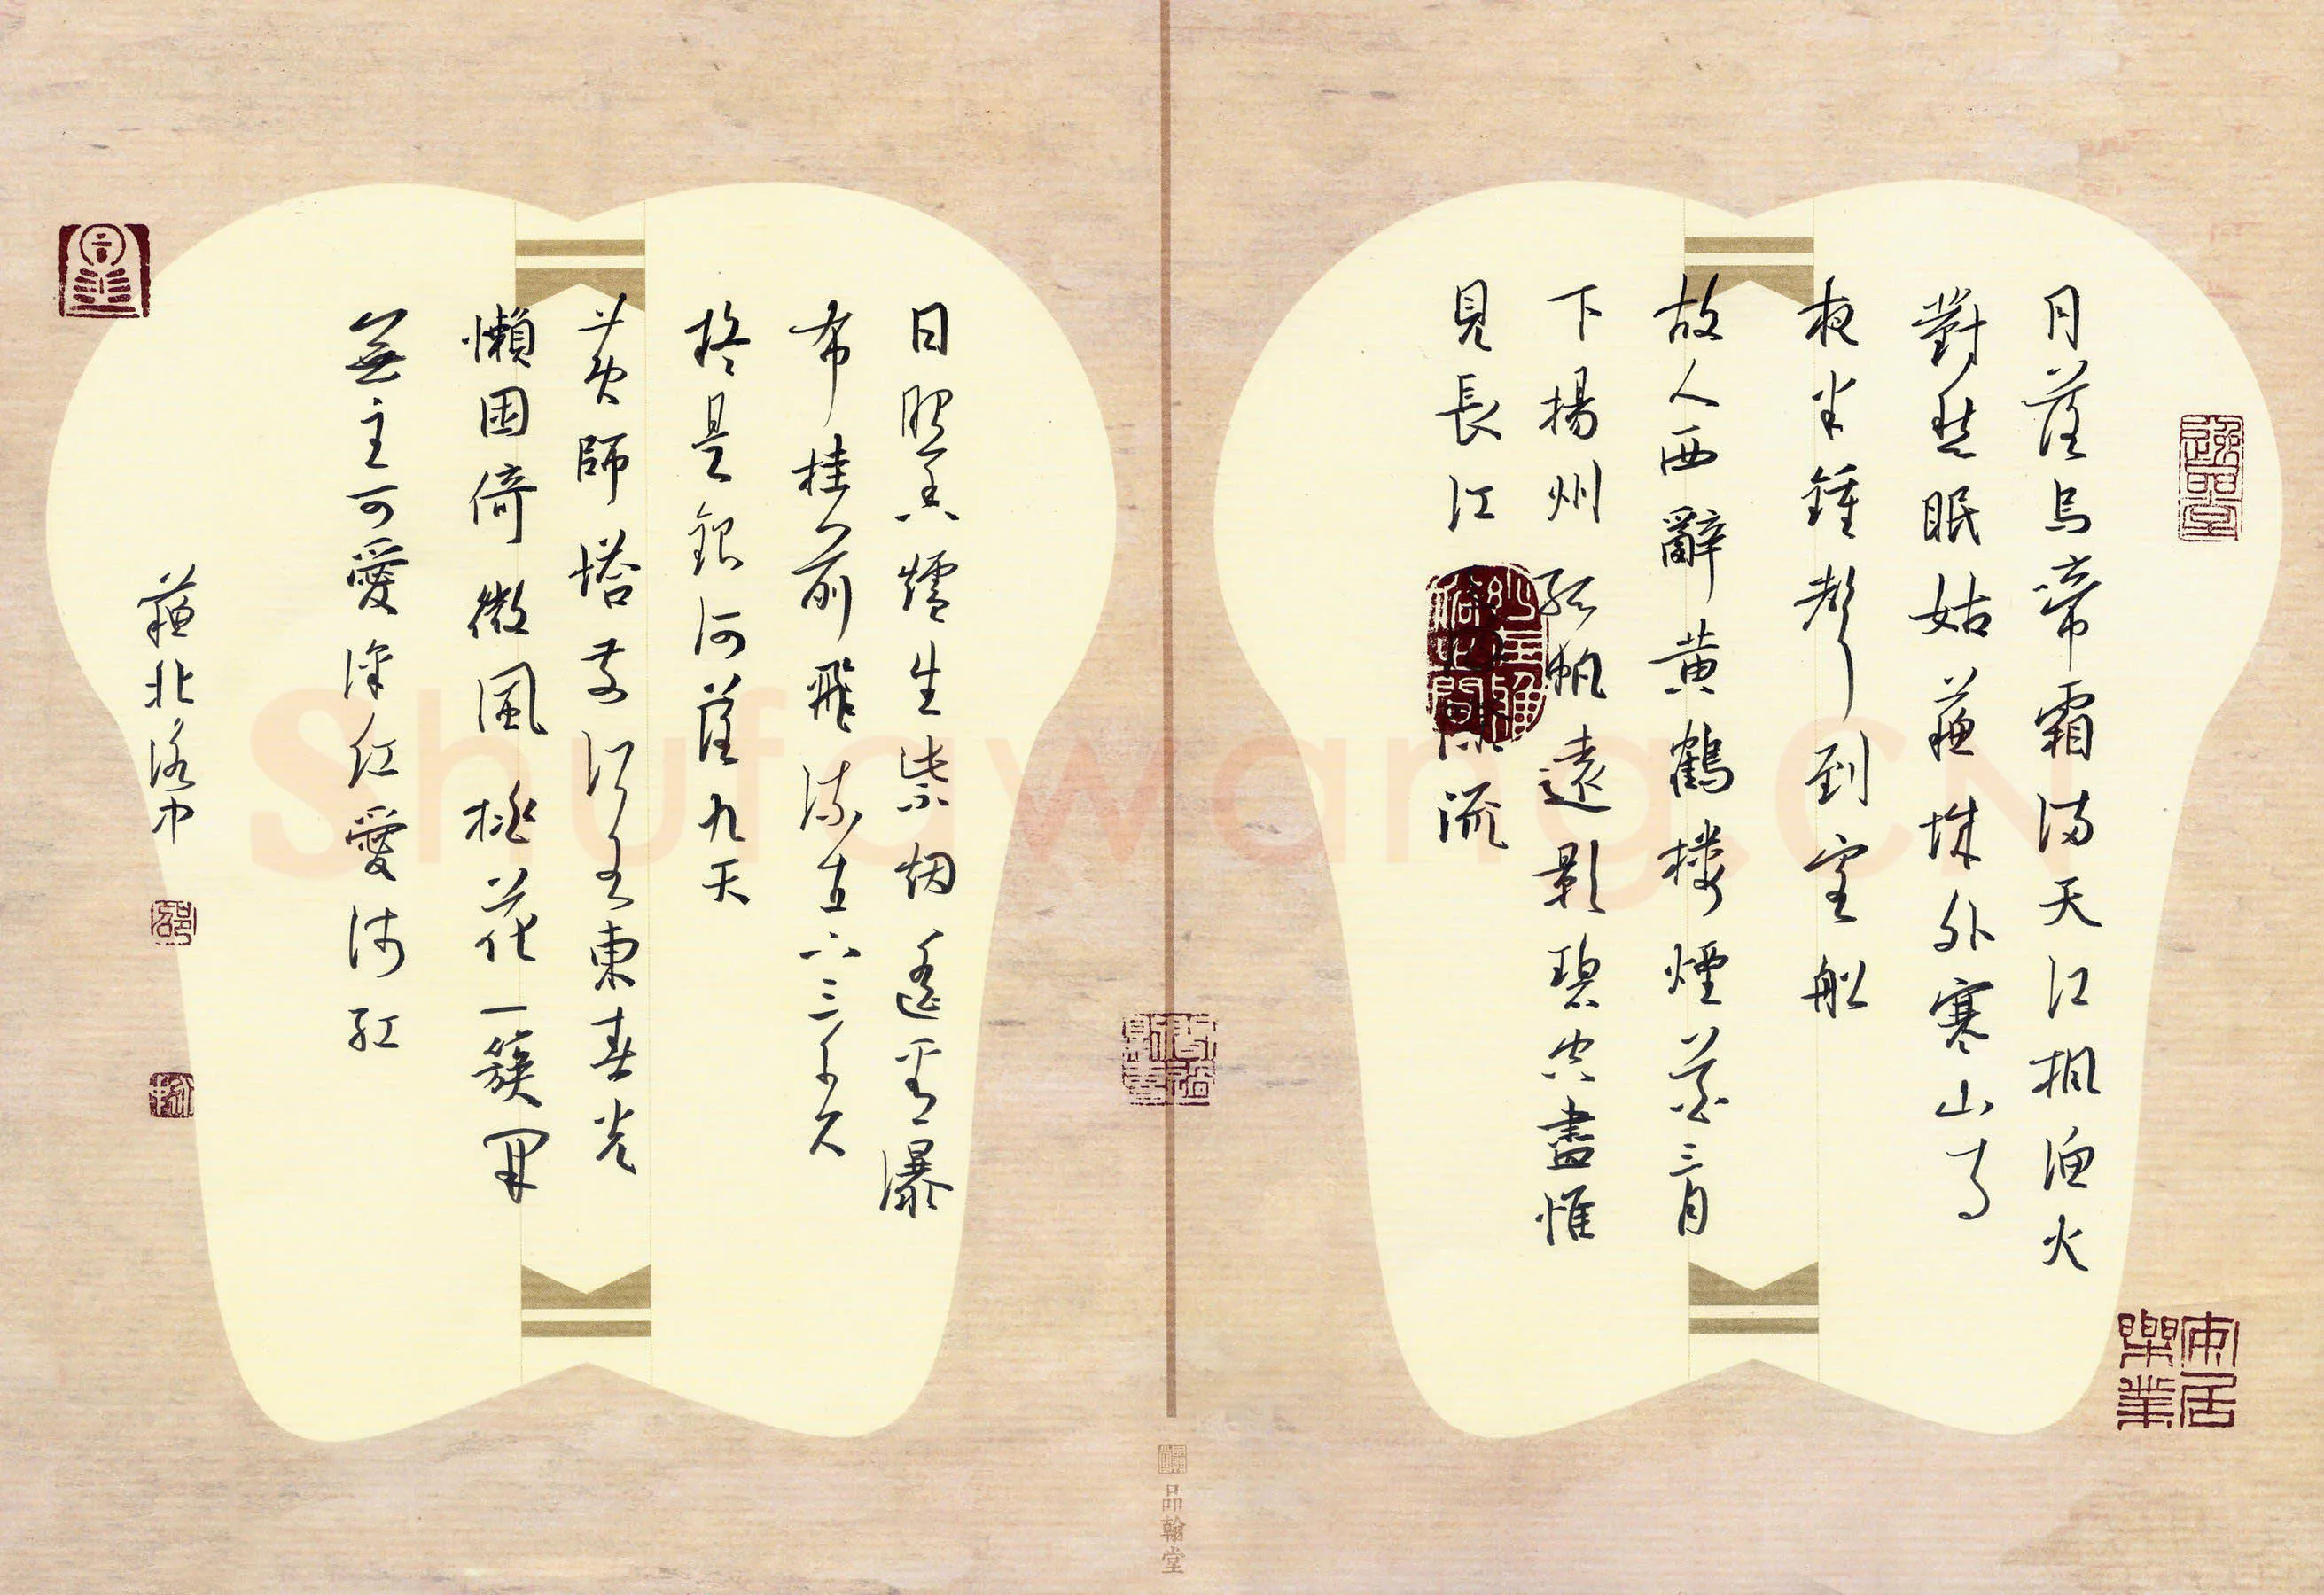 月落烏啼霜滿天江楓漁火
對愁眠姑蘇城外寒山寺
夜半鍾聲到客船
故人西辭黄鶴楼煙花三月
下揚州孤帆遠影碧空盡惟
見長江流
日照香爐生紫烟遙看瀑
布挂前飛流直下三千尺
疑是銀河落九天
黄師塔前江水東春光
懶困倚微風桃花一簇開
無主可愛深紅愛淺紅
蘇北
安居樂業
品翰堂
Shufawang.CN